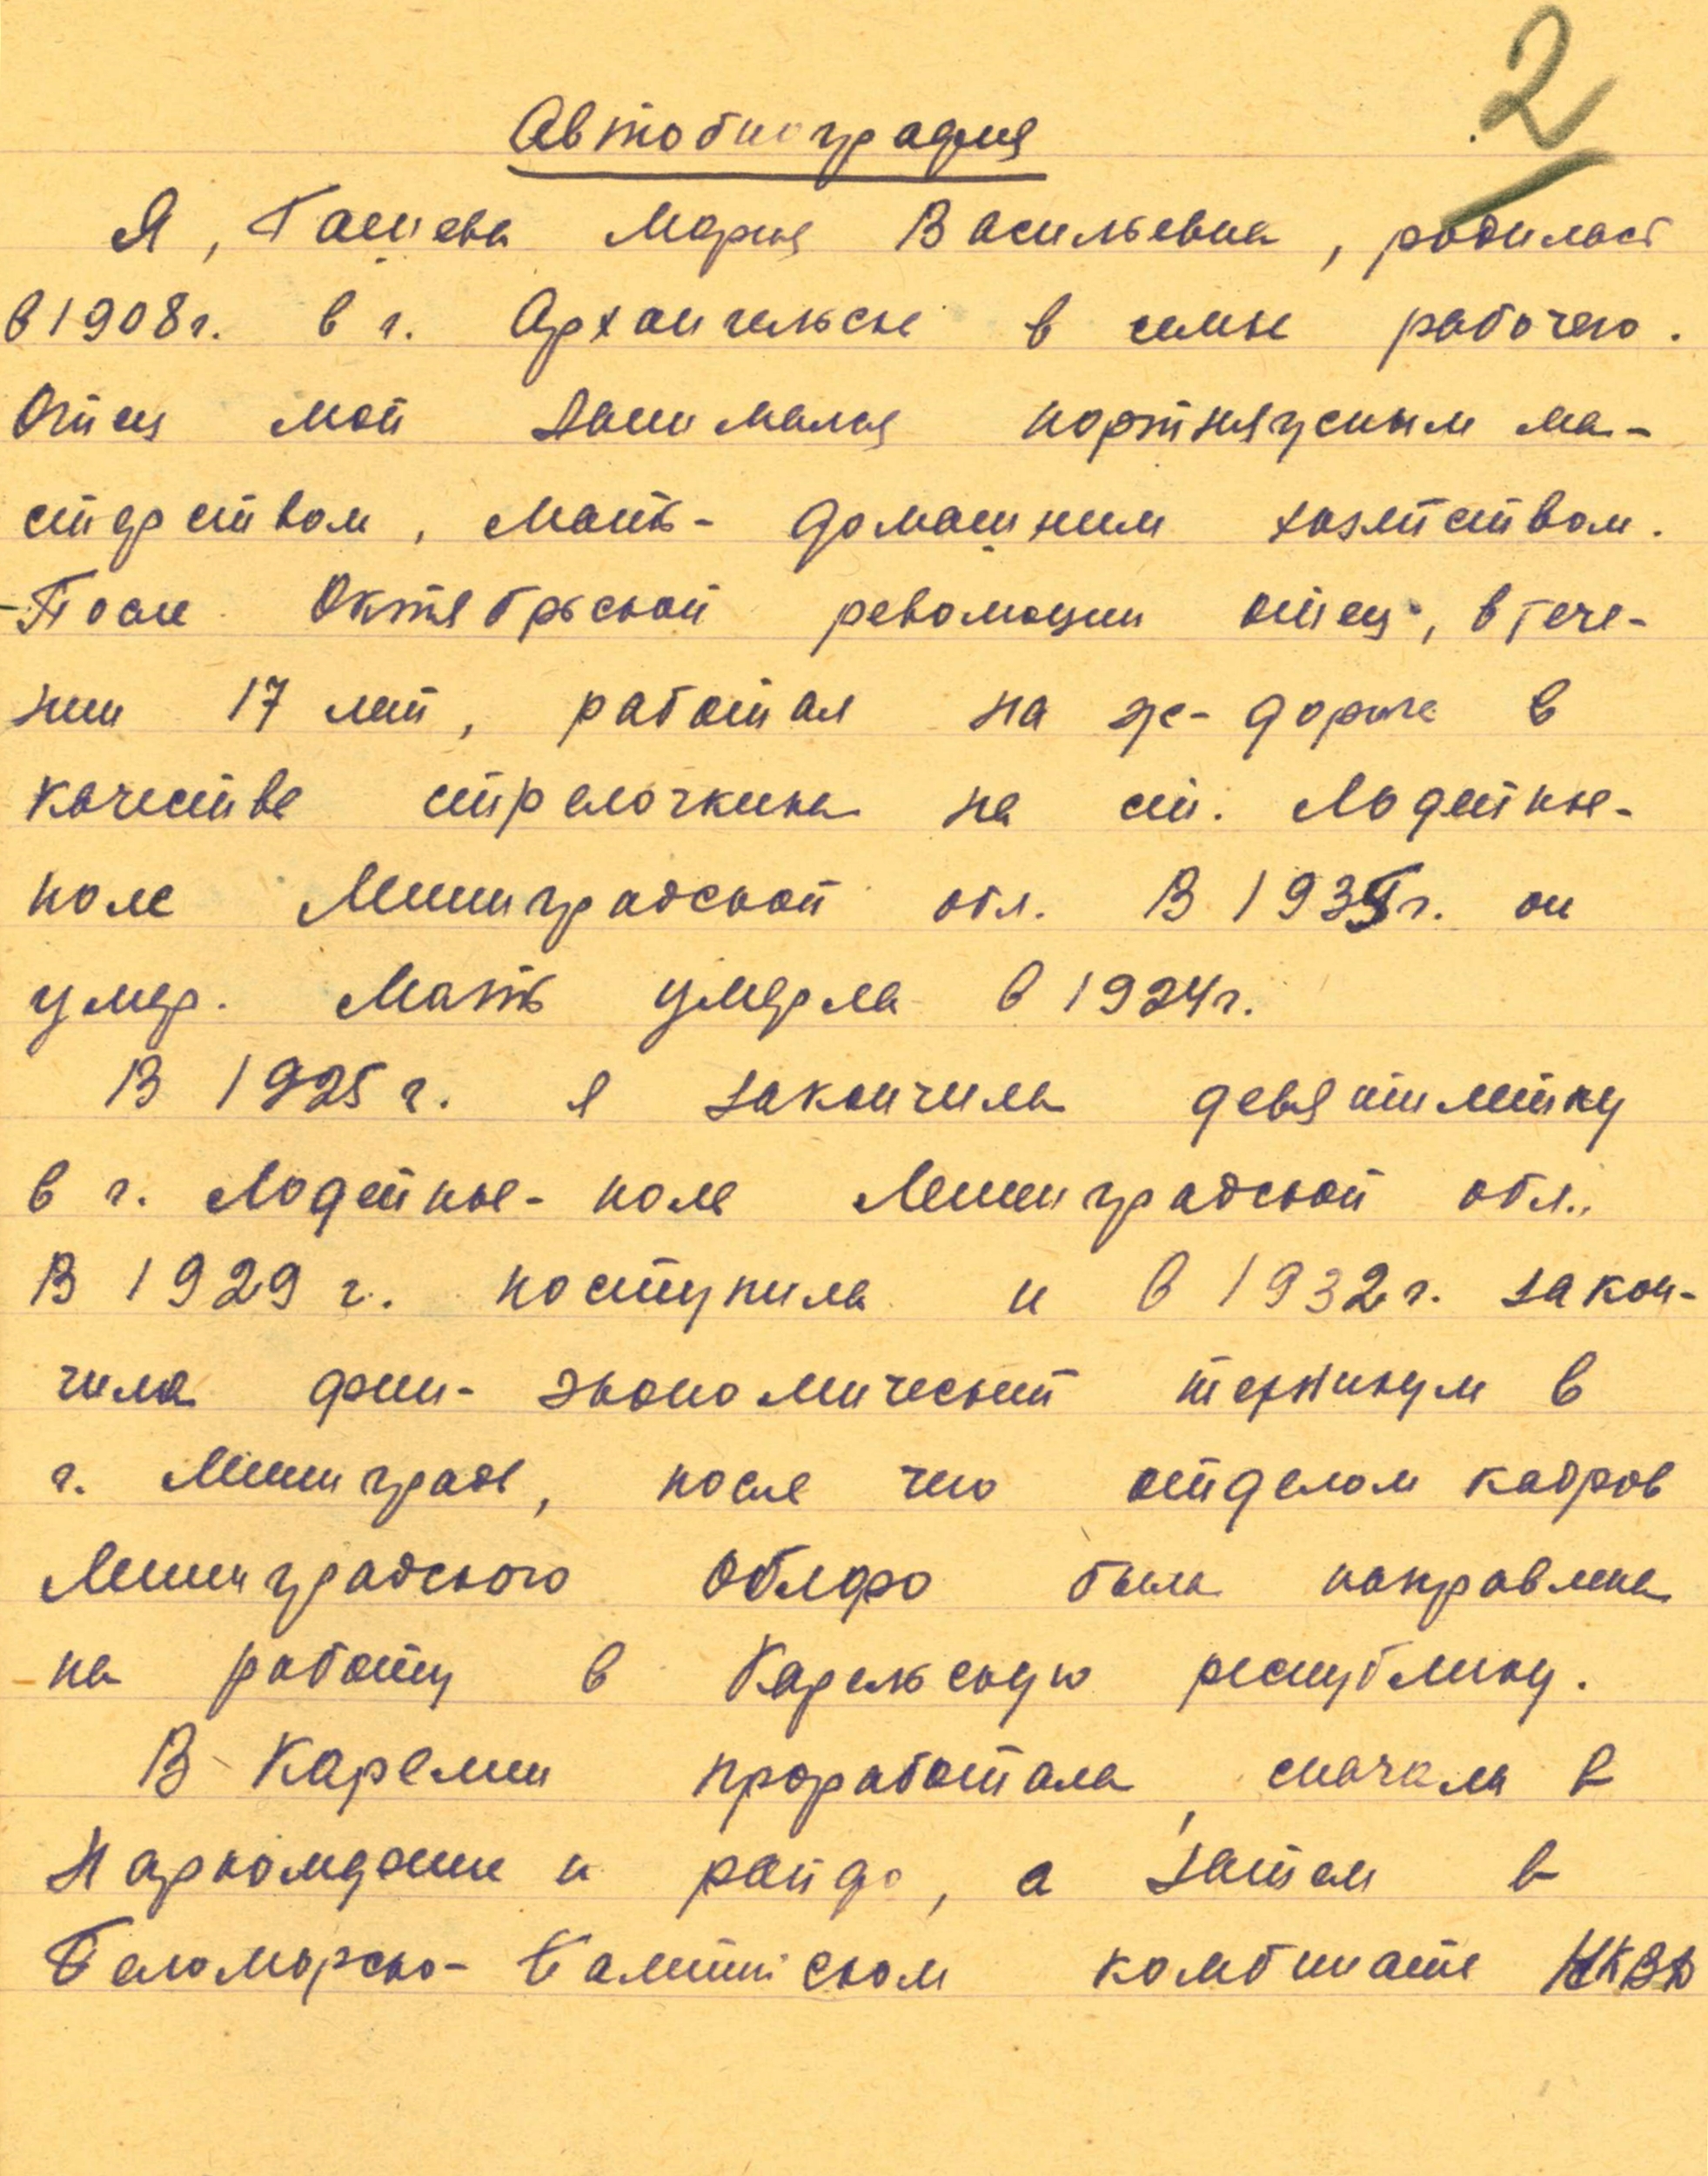 2
Автобиография
Я, Гашева Мария Васильевна, родилась
в 1908 г. в г. Архангельске в семье рабочего.
Отец мой занимался портняжным ма-
стерством, мать - домашним хозяйством.
После Октябрьской революции отец, в тече-
нии 17 лет, работал на ж-дороге в
качестве стрелочника на ст. Лодейное-
поле Ленинградской обл. В г. он
умер. Мать умерла в 1924 г.
В 1925 г. я закончила девятилетку
в г. Лодейное-поле Ленинградской обл.,
В 1929 г. поступила и в 1932 г. закон-
чила фин-экономический техникум в
г. Ленинграде, после чего отделом кадров
Ленинградского Облфо была направлена
на работу в Карельскую республику.
В Карелии проработала, сначала в
Наркомфине и райфо, а затем в
Беломорско-Балтийском комбинате НКВД